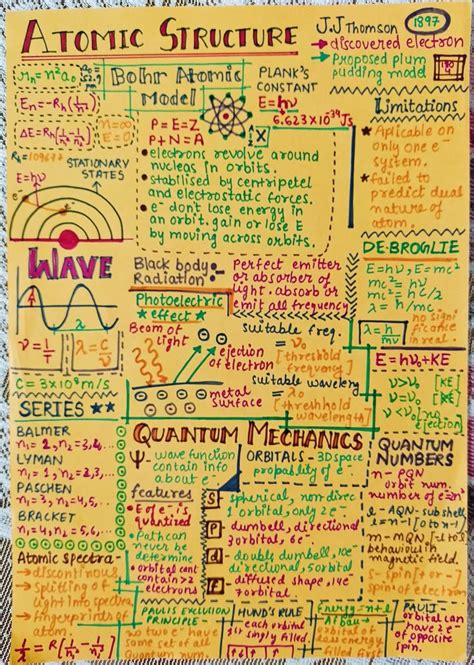 ATOMIC STRUCTURE
J.J Thomson 1897
→ discovered electron
→ Proposed plum
pudding model
rn = n²a₀
En = -Rh(1/n²)
ΔE = Rh(1/n₁² - 1/n₂²)
n=∞
E=0
STATIONARY
STATES
E=hν
Bohr Atomic
Model
P=E=Z
P+N=A
X
• electrons revolve around
nucleas in orbits.
• stabilised by centripetel
and electrostatic forces.
• e⁻ don't lose energy in
an orbit. gain or lose E
by moving across orbits.
PLANK'S
CONSTANT
E=hν
6.623×10³⁴Js
Limitations
★ Aplicable on
only one e⁻
system.
★ failed to
predict dual
nature of
atom.
WAVE
λ
ν = 1/T
ν = c/λ
C = 3×10⁸m/s
Black body
Radiation
Perfect emitter
or absorber of
light. absorb or
emit all frequency
Photoelectric
effect
Beam of
light
ejection
of electron
metal
surface
suitable freq.
= ν₀
[threshold
frequency]
suitable waveleng
= λ₀
[threshhold
wavelength]
DE-BROGLIE
E=hν, E=mc²
mc² = hν
mc² = hc/λ
λ = h/mc
λ = h/mv
no signi
ficance
in real.
E=hν₀+KE
ν>ν₀ [KE]
ν=ν₀ [KE]
ν<ν₀ [no ejection]
SERIES ★★
BALMER
n₁=2, n₂=3,4,...
LYMAN
n₁=1, n₂=2,3,...
PASCHEN
n₁=3, n₂=4,5,..
BRACKET
n₁=4, n₂=5,6,...
Atomic Spectra
→ discontinous
→ splitting of
light into spectra
→ fingerprints of
atom.
1/λ = R[1/n₁² - 1/n₂²]
QUANTUM MECHANICS
Ψ - wave function
contain info
about e⁻
features
• E of e⁻ is
quantized
• Path can
never be
determine
• orbital cant
contain >2
electrons
ORBITALS - 3D space
propablity of e⁻
S spherical, non direc
1 orbital, only 2e⁻
P dumbell, directional
3 orbital, 6e⁻
d double dumbell, 10e⁻
directional, 5 orbital
f diffused shape, 14e⁻
7 orbital
QUANTUM
NUMBERS
n - PQN
orbit num.
number of e=2n²
l - AQN - subshell
l=n-1 [0 to n-1]
m - MQN [-l to l]
behaviour in
magnetic field.
s - spin [+ or -]
spin of electron
PAULI'S EXCLUSION
PRINCIPLE
no two e⁻ have
same set of all
Quantum num.
HUND'S RULE
each orbital
1st singly filled.
Energy = n+l
Afbau
orbital of
less energy
filled first
PAULI -
orbital can
have 2 e⁻
of opposite
spin.